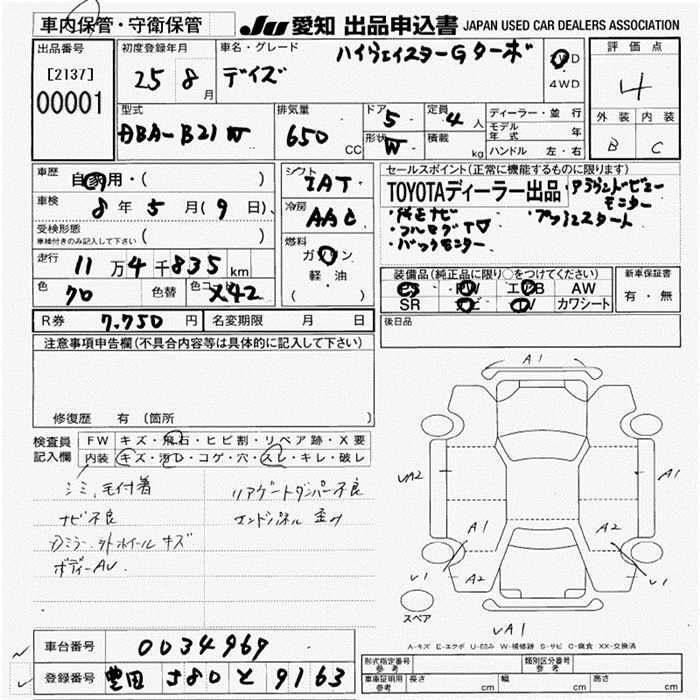 車内保管・守衛保管
JU 愛知 出品申込書 JAPAN USED CAR DEALERS ASSOCIATION
出品番号
[2137]
00001
初度登録年月
25 8 月
車名・グレード
ハイウェイスターG ターボ
デイズ
2WD
4WD
評価点
4
外装 内装
B C
型式
ABA-B21W
排気量
650 CC
ドア 5
形状 W
定員 4 人
積載 kg
ディーラー・並行
モデル年式 年
ハンドル 左・右
車歴
自家用・( )
車検
8 年 5 月 ( 9 日)
受検形態
車検付きのみ記入して下さい ( )
走行 11 万 4 千 835 km
色 クロ 色替 色コード X42
シフト
IAT
冷房
AAC
燃料
ガソリン
軽・油
( )
セールスポイント(正常に機能するものに限ります)
TOYOTAディーラー出品 ・アラウンドビューモニター
・純正ナビ ・プッシュスタート
・フルセグTV
・バックモニター
装備品(純正品に限り○をつけてください)
PS PW エアB AW
SR ナビ TV カワシート
新車保証書
有・無
R券 7.750 円 名変期限 月 日
後日品
注意事項申告欄(不具合内容等は具体的に記入して下さい)
修復歴 有 (箇所 )
検査員
記入欄
FW キズ・飛石・ヒビ割・リペア跡・X要
内装 キズ・汚レ・コゲ・穴・スレ・キレ・破レ
シミ、毛付着
ナビ不良
Dミラー、外ホイールキズ
ボディーAU
リアゲートダンパー不良
エンドパネル 歪み
A1
UA2
A1
A1
A2
U1
A2
U1
スペア
UA1
A-キズ E-エクボ U-凹み W-補修跡 S-サビ C-腐食 XX-交換済
車台番号 0034969
登録番号 豊田 580 と 9163
形式指定番号
参考
類別区分番号
参考
車庫証明用
参考
長さ cm 幅 cm 高さ cm